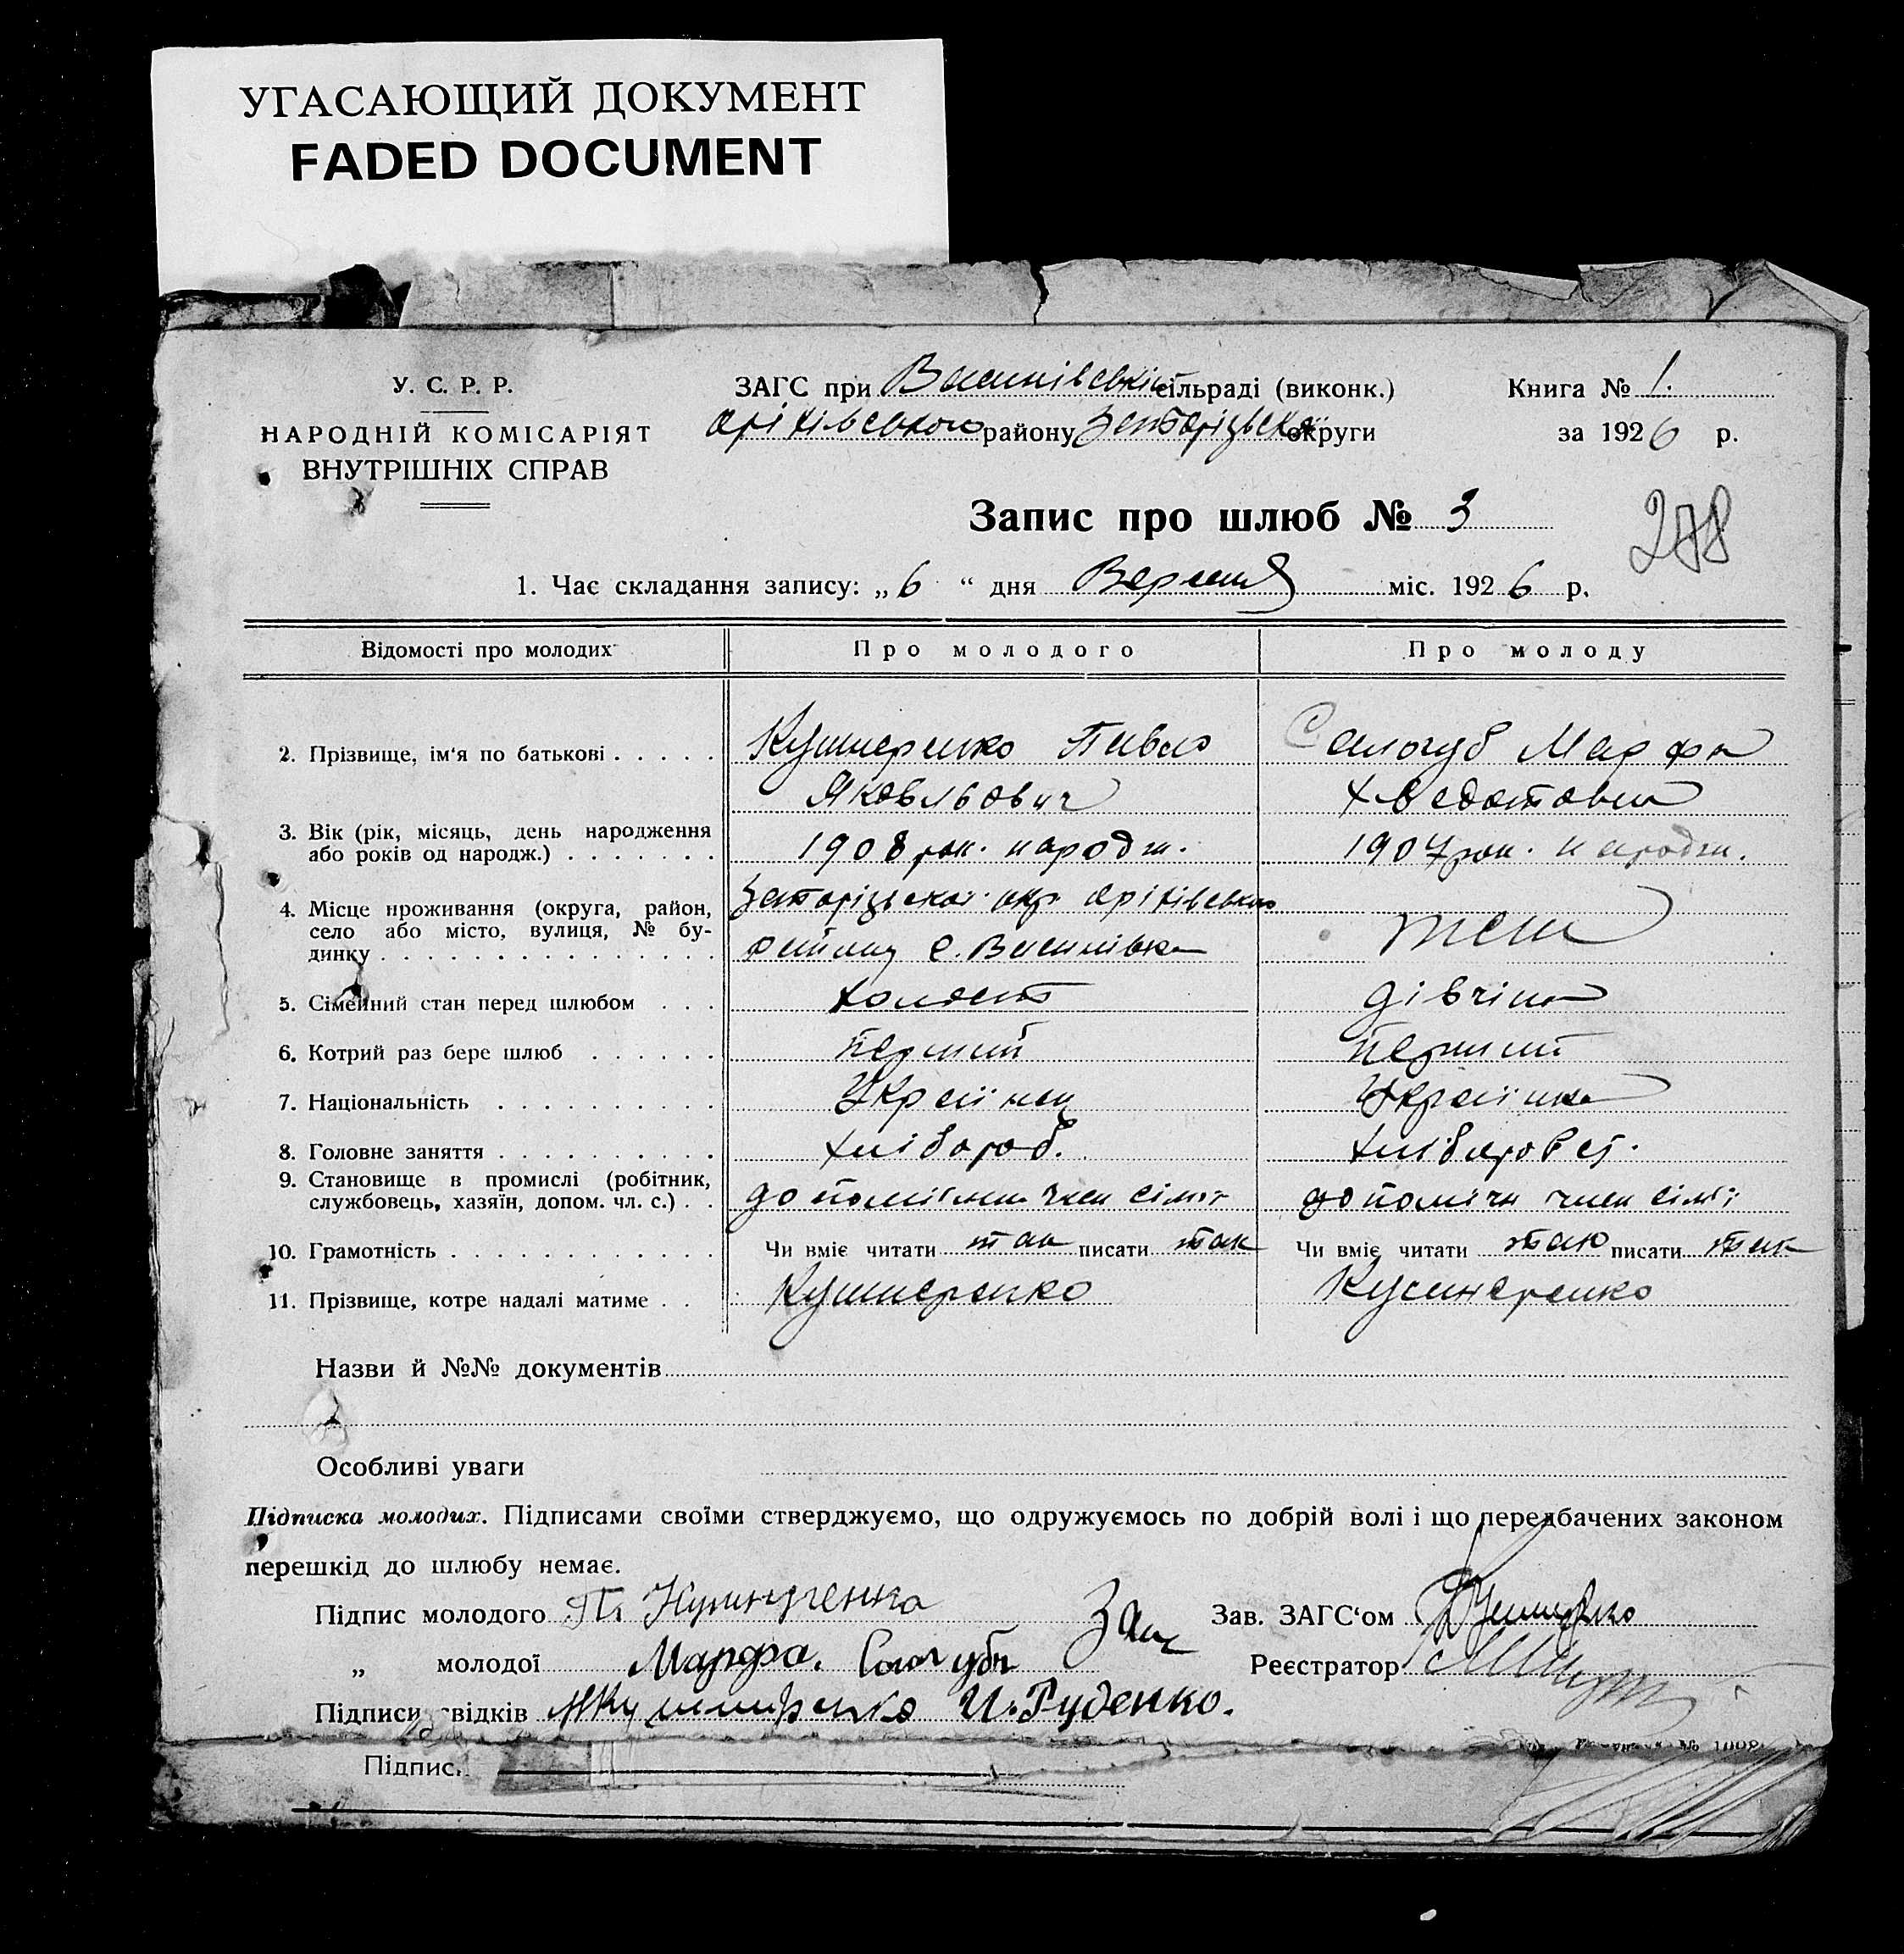 УГАСАЮЩИЙ ДОКУМЕНТ
FADED DOCUMENT
У. С. Р. Р.
НАРОДНІЙ КОМІСАРІЯТ
ВНУТРІШНІХ СПРАВ
ЗАГС при Василівській сільраді (виконк.)
Оріхівського району Запорізької округи
Книга № 1.
за 1926 р.
Запис про шлюб № 3
278
1. Чає складання запису: „6“ дня Вересня міс. 1926 р.
Відомості про молодих Про молодого Про молоду
2. Прізвище, ім'я по батькові Кушнеренко Павло Салогуб Марфа
Яковльович Хведотовна
3. Вік (рік, місяць, день народження
або років од народж.) 1908 рок. народж. 1907 рок. народж.
4. Місце проживання (округа, район, Запорізької окр. Оріхівського
село або місто, вулиця, № бу-
динку району с. Василівка теж
5. Сімейний стан перед шлюбом холост дівчіна
6. Котрий раз бере шлюб перший перший
7. Національність Украйінец Украйінка
8. Головне заняття хлібороб.
9. Становище в промислі (робітник,
службовець, хазяїн, допом. чл. с.) допоміжни член сімї допоміжи член сімї
10. Грамотність Чи вміє читати так писати так Чи вміє читати так писати так
11. Прізвище, котре надалі матиме Кушнеренко Кушнеренко
Назви й №№ документів
Особливі уваги
Підписка молодих. Підписами своїми стверджуємо, що одружуємось по добрій волі і що передбачених законом
перешкід до шлюбу немає.
Підпис молодого П. Кушнуренко Зав. ЗАГС‘ом
„ молодої Марфа. Салогуб Реєстратор
Підписи свідків Кушниренко И. Руденко.
Підпис